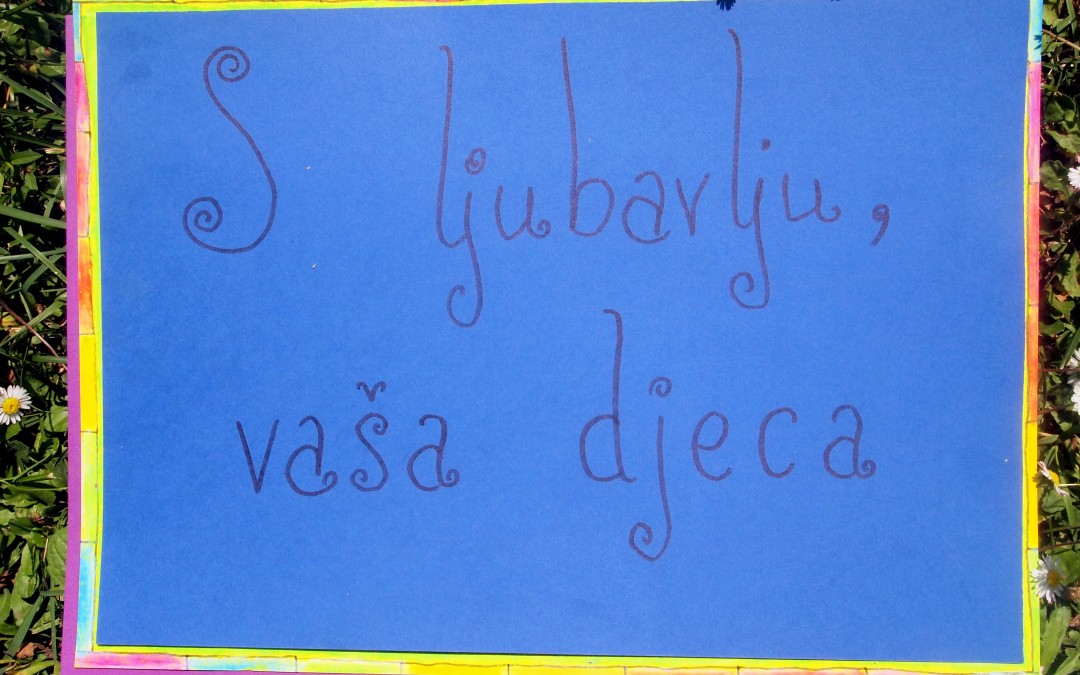 S ljubavlju,
vaša djeca